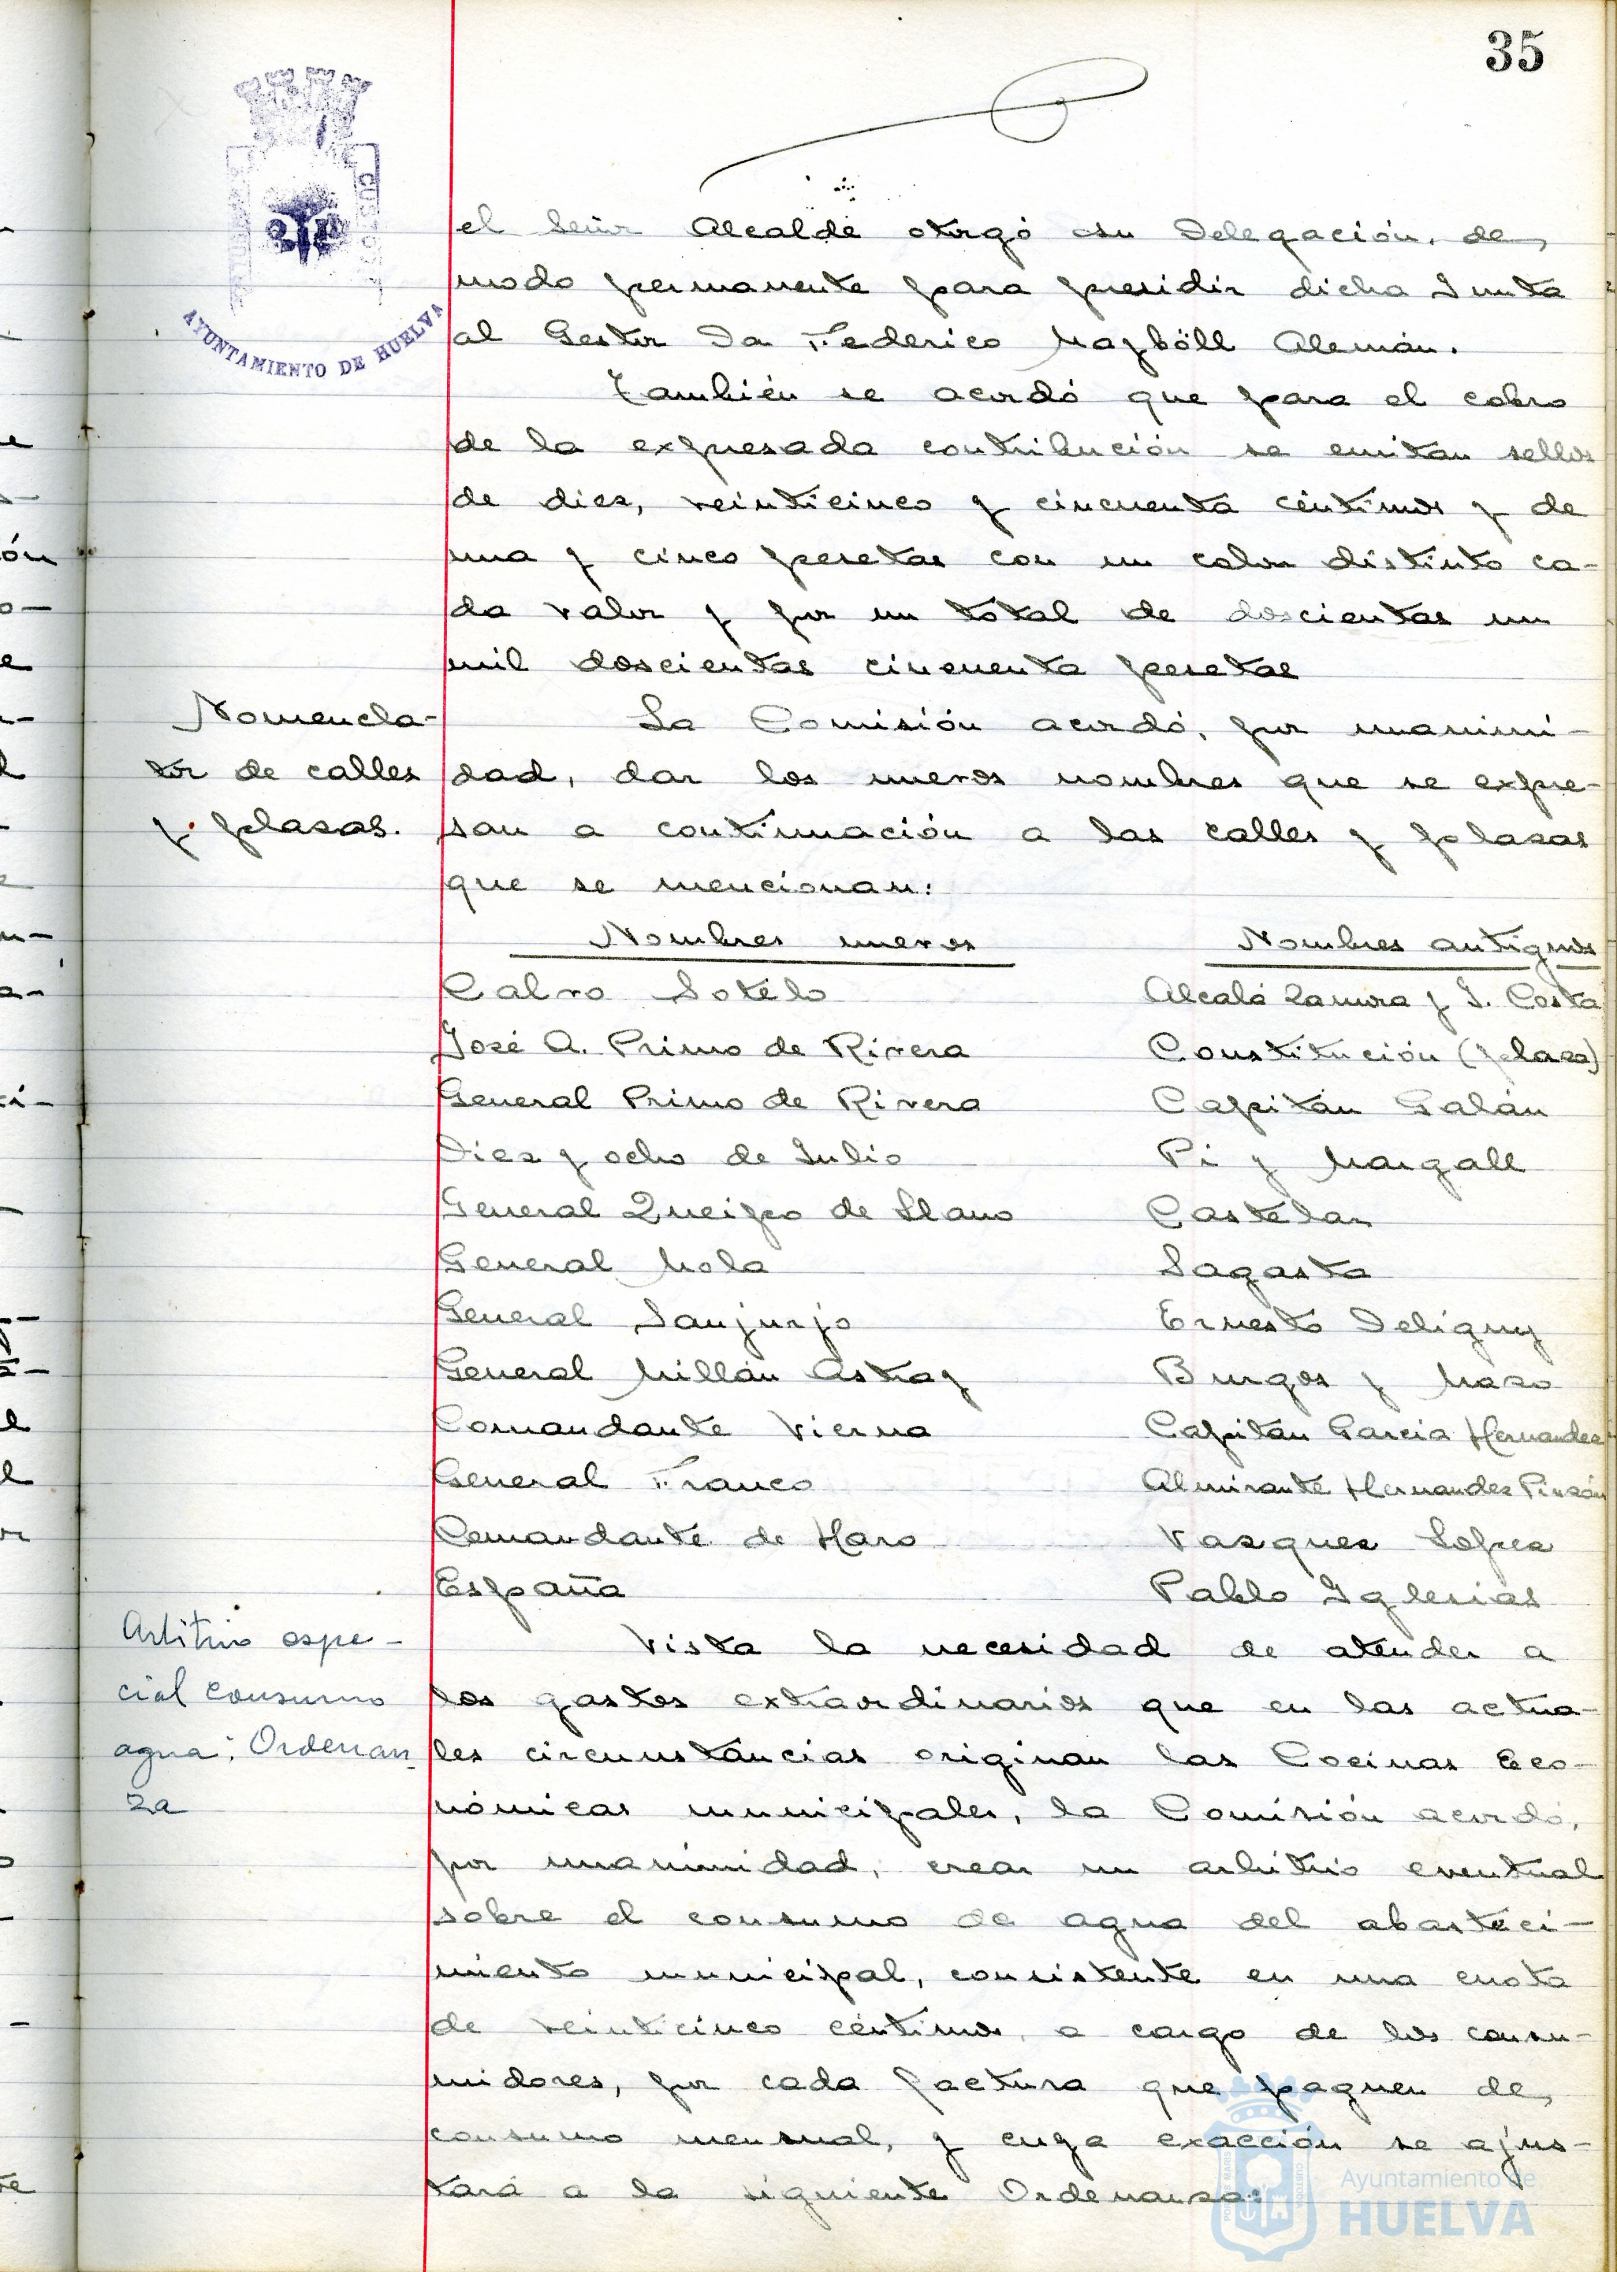 35
AYUNTAMIENTO DE HUELVA
el Señor Alcalde otorgó su Delegación, de
modo permanente para presidir dicha Junta
al Gestor Dn Federico Mayböll Alemán.
También se acordó que para el cobro
de la expresada contribución se emitan sellos
de diez, veinticinco y cincuenta céntimos y de
una y cinco pesetas con un color distinto ca-
da valor y por un total de doscientas un
mil doscientas cincuenta pesetas
Nomencla-
tor de calles
y plazas.
La Comisión acordó, por unanimi-
dad, dar los nuevos nombres que se expre-
san a continuación a las calles y plazas
que se mencionan:
Nombres nuevos Nombres antiguos
Calvo Sotelo Alcalá Zamora y J. Costa
José A. Primo de Rivera Constitución (plaza)
General Primo de Rivera Capitán Galán
Diez y ocho de Julio Pi y Margall
General Queipo de Llano Castelar
General Mola Sagasta
General Sanjurjo Ernesto Deligny
General Millán Astray Burgos y Mazo
Comandante Vierna Capitán García Hernandez
General Franco Almirante Hernandez Pinzón
Comandante de Haro Vazquez Lopez
España Pablo Iglesias
Arbitrio espe-
cial consumo
agua: Ordenan-
za
Vista la necesidad de atender a
los gastos extraordinarios que en las actua-
les circunstancias originan las Cocinas Eco-
nómicas municipales, la Comisión acordó,
por unanimidad, crear un arbitrio eventual
sobre el consumo de agua del abasteci-
miento municipal, consistente en una cuota
de veinticinco céntimos, a cargo de los consu-
midores, por cada factura que paguen de
consumo mensual, y cuya exacción se ajus-
tará a la siguiente Ordenanza:
Ayuntamiento de
HUELVA